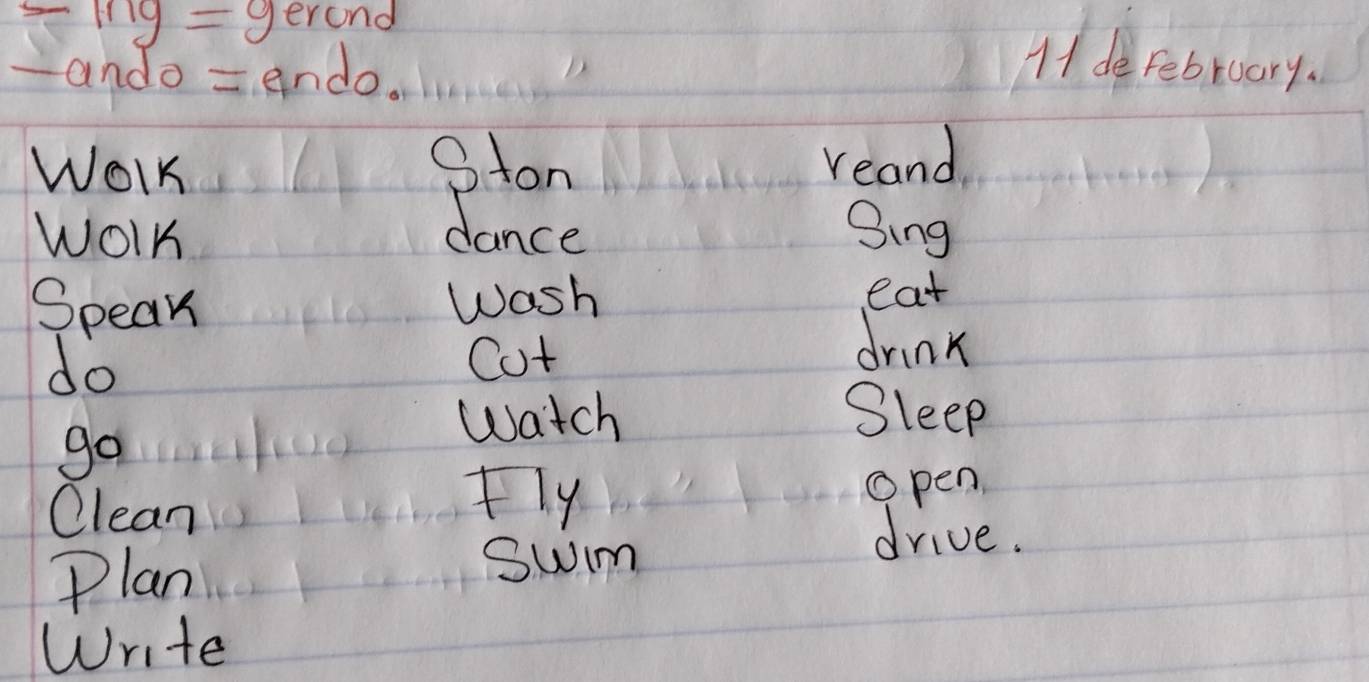 - ing = gerond
-ando = endo. "
11 de February.
Wolk Ston reand
Wolk dance Sing
Speak Wash eat
do Cut drink
go Watch Sleep
Clean Fly open
Plan Swim drive.
Write